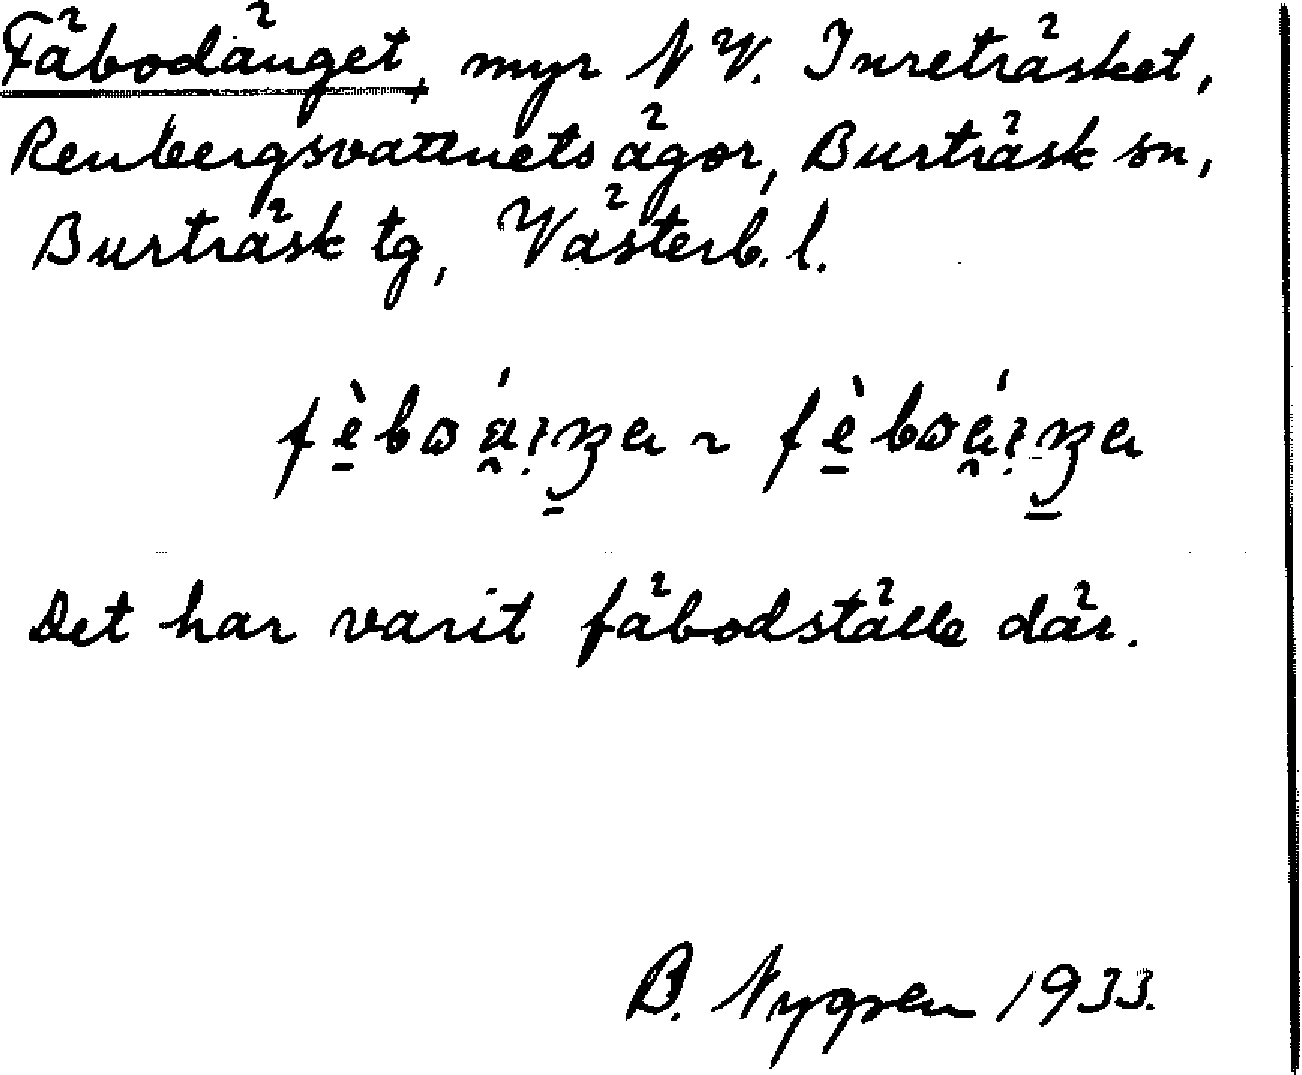 Fäbodänget, myr NV. Inreträsket,
Renbergsvattnets ägor, Burträsk sn,
Burträsk tg, Västerb. l.
Det har varit fäbodställe där.
B. Nygren 1933.